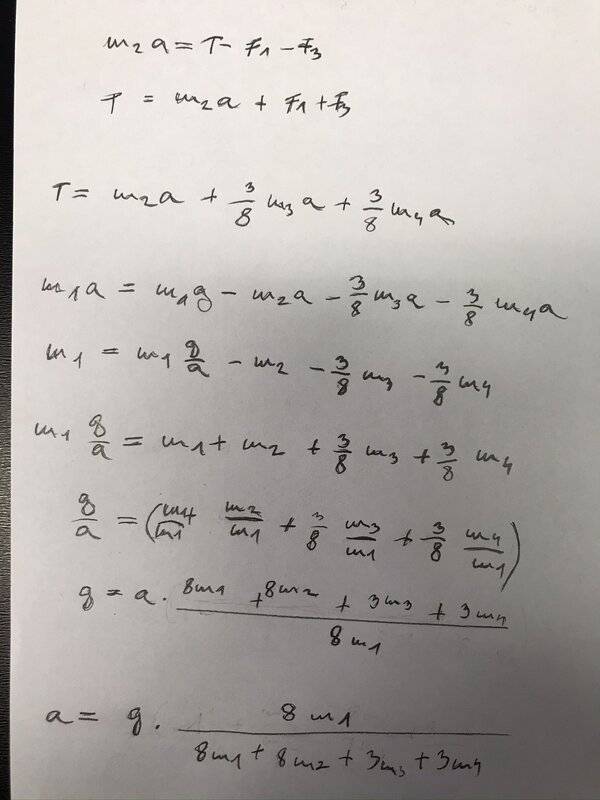 m₂a = T - F₁ - F₃
T = m₂a + F₁ + F₃
T = m₂a + 3/8 m₃a + 3/8 m₄a
m₁a = m₁g - m₂a - 3/8 m₃a - 3/8 m₄a
m₁ = m₁ g/a - m₂ - 3/8 m₃ - 3/8 m₄
m₁ g/a = m₁ + m₂ + 3/8 m₃ + 3/8 m₄
g/a = (m₁/m₁ m₂/m₁ + 3/8 m₃/m₁ + 3/8 m₄/m₁)
g = a · (8m₁ + 8m₂ + 3m₃ + 3m₄)/(8m₁)
a = g · 8m₁/(8m₁ + 8m₂ + 3m₃ + 3m₄)